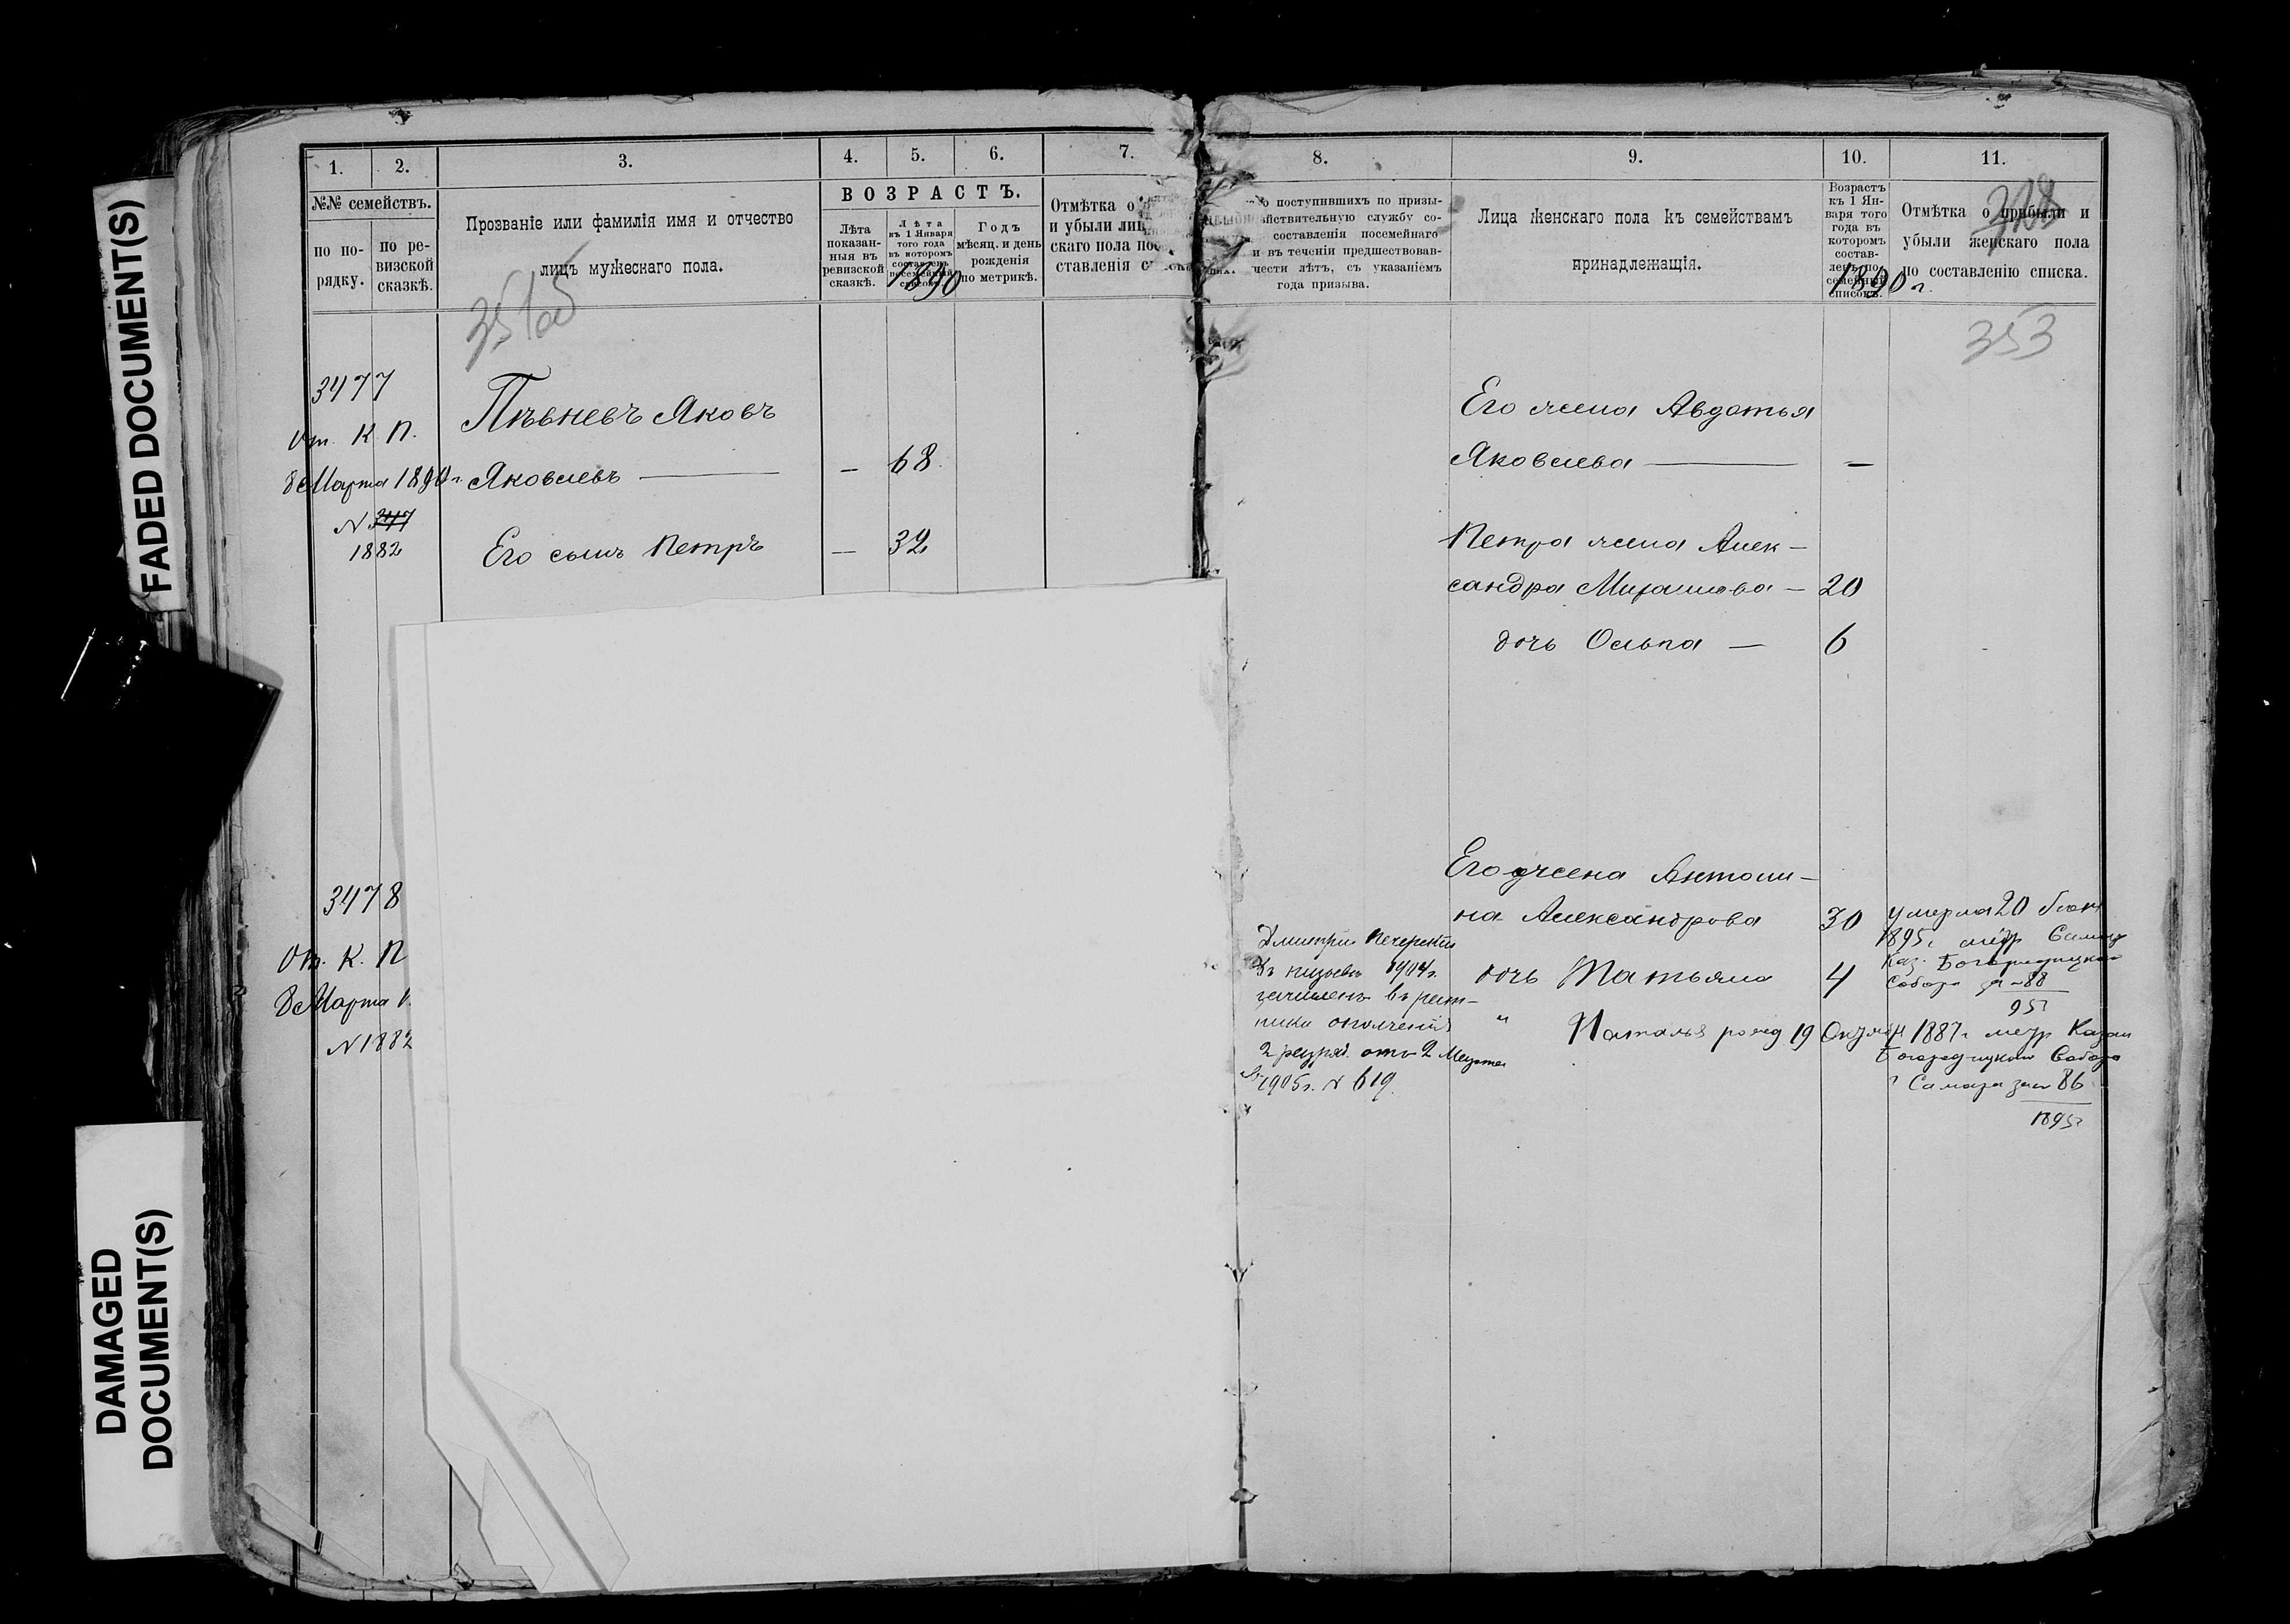 FADED DOCUMENT(S)
DAMAGED
DOCUMENT(S)
1.
2.
3.
4.
5.
6.
7.
№№ семействъ.
по по-
рядку.
по ре-
визской
сказкѣ.
Прозваніе или фамилія имя и отчество
лицъ мужескаго пола.
ВОЗРАСТЪ.
Лѣта
показан-
ныя въ
ревизской
сказкѣ.
Лѣта
къ 1 Января
того года
въ которомъ
составленъ
посемейный
списокъ.
1890
Годъ
мѣсяц. и день
рожденія
по метрикѣ.
Отмѣтка о
и убыли лиц
скаго пола по
ставленія
3477
От. К. П.
8 Марта 1890 г.
N 347
1882
Пѣвневъ Яковъ
Яковлевъ — — 68.
Его сынъ Петръ — 32
3478
От. К. П
8 Марта 1
N 1882
8.
9.
10.
11.
о поступившихъ по призы-
йствительную службу со-
составленія посемейнаго
и въ теченіи предшествовав-
шести лѣтъ, съ указаніемъ
года призыва.
Лица женскаго пола къ семействамъ
принадлежащія.
Возрастъ
къ 1 Ян-
варя того
года въ
которомъ
состав-
ленъ по-
семейный
списокъ.
1890 г.
Отмѣтка о прибыли и
убыли женскаго пола
по составленію списка.
353
Его жена Авдотья
Яковлева — —
Петра жена Алек-
сандра — 20
дочь Ольга — 6
Его жена Антони-
на Александрова 30
дочь Татьяна 4
" Наталья рожд 19 Октябр 1887 г метр Казан
Богородицкаго Собора
г Самара за № 86
1895 г
Умерла 20
1895 г метр Самар
Каз. Богородицкаго
Собора за № 88
95 г
Дмитрій
Въ призывъ 1904 г.
зачисленъ въ рат-
ники ополченія
2 разряд. отъ 2 Марта
1905 г. N 619.